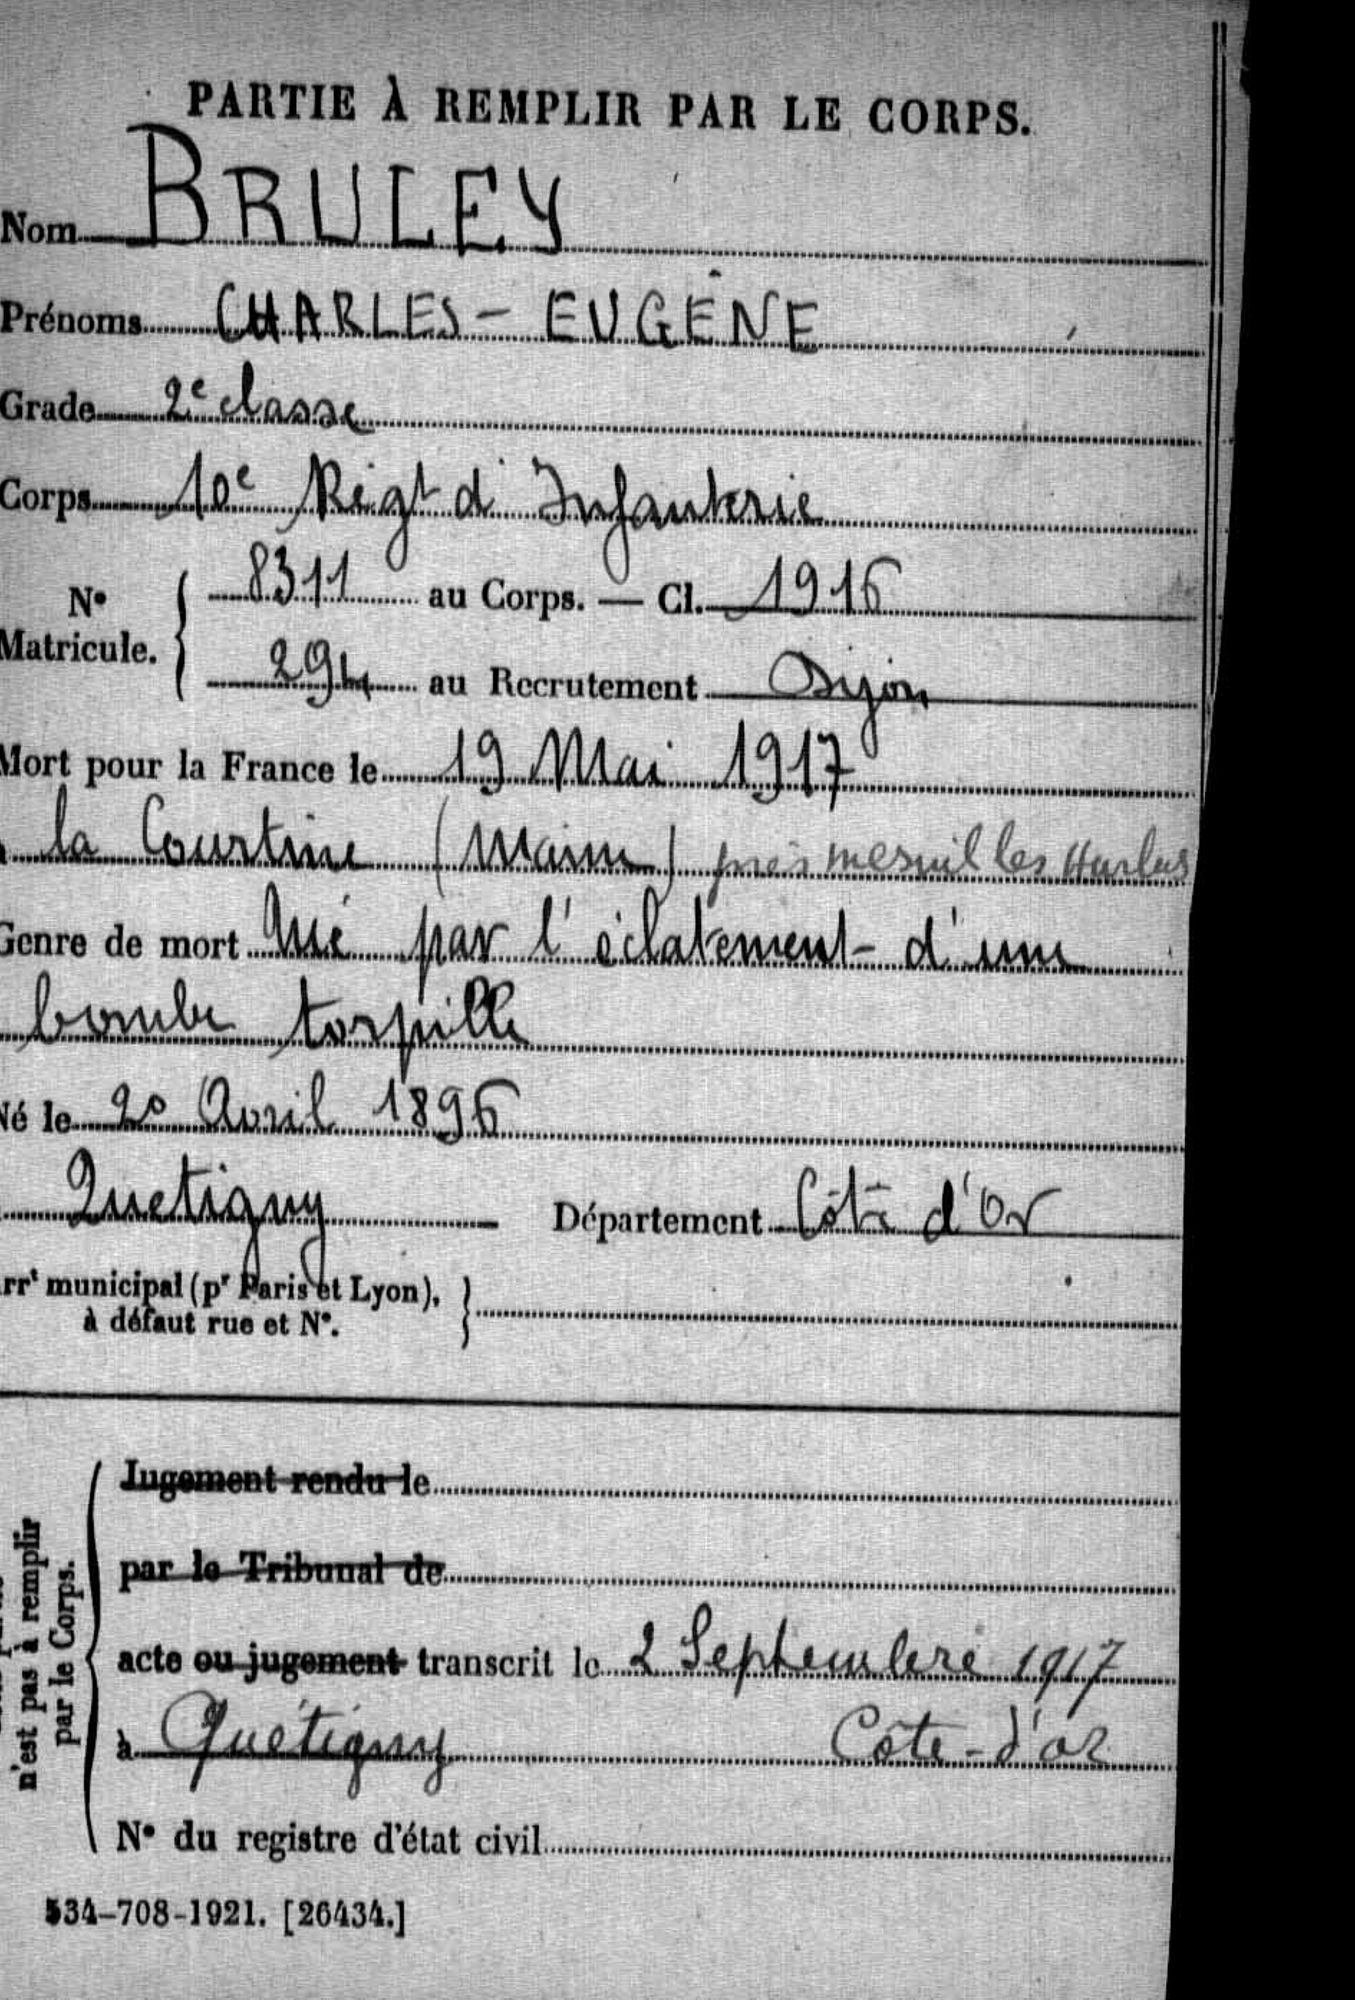 PARTIE À REMPLIR PAR LE CORPS.
Nom BRULEY
Prénoms CHARLES - EUGÈNE
Grade 2e classe
Corps 10e Régt d'Infanterie
No Matricule. 8311 au Corps. — Cl. 1916
294 au Recrutement Dijon
Mort pour la France le 19 Mai 1917
la Courtine (Marne) près mesnil les Hurlus
Genre de mort Tué par l'éclatement d'une
bombe torpille
Né le 20 Avril 1896
Quetigny Département Côte d'Or
arrt municipal (pr Paris et Lyon),
à défaut rue et No.
n'est pas à remplir
par le Corps.
Jugement rendu le
par le Tribunal de
acte ou jugement transcrit le 2 Septembre 1917
à Quétigny Côte-d'or
No du registre d'état civil
534-708-1921. [26434.]